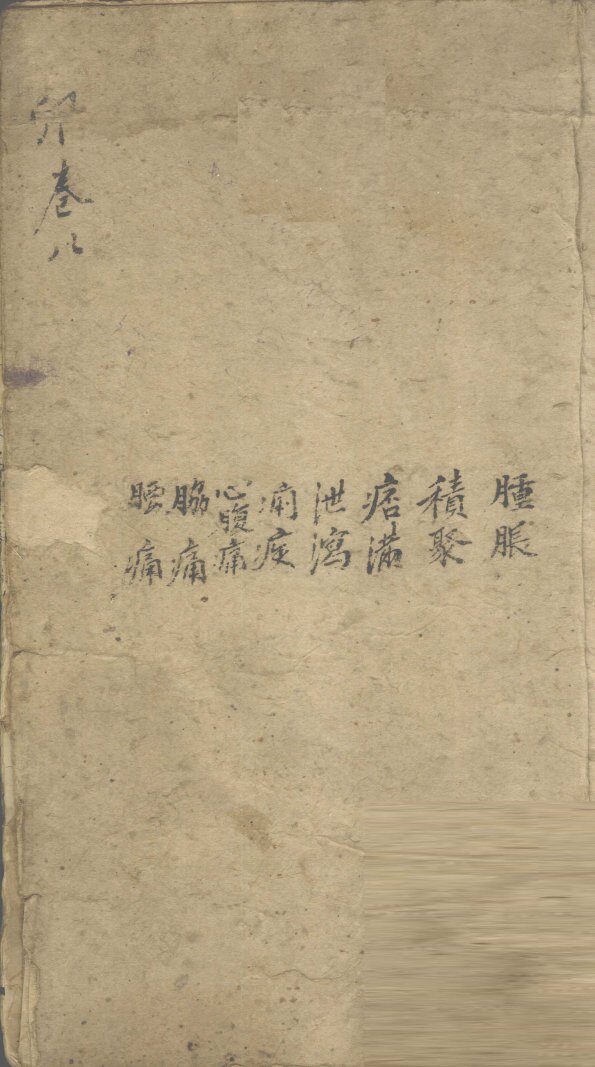 腫脹
積聚
痞滿
泄瀉
痢疾
心腹痛
脇痛
腰痛
卯卷八